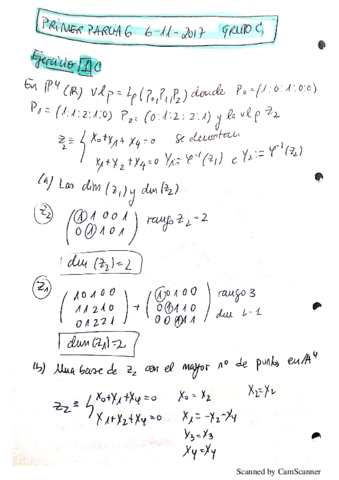 PRIMER PARCIAL 6-11-2017 GRUPO C
Ejercicio 1 C
En P⁴(R) vlp = Lp(P₀,P₁,P₂) donde P₀=(1:0:1:0:0)
P₁=(1:1:2:1:0) P₂=(0:1:2:2:1) y la vlp Z₂
Z₂ ≡ { x₀+x₁+x₄=0 Se denotan
x₁+x₂+x₄=0 Y₁:=φ⁻¹(Z₁) e Y₂:=φ⁻¹(Z₂)
(a) Las dim (Z₁) y dim (Z₂)
Z₂ (1 1 0 0 1 rango Z₂=2
0 1 1 0 1)
dim (Z₂)=2
Z₁ (1 0 1 0 0 (1 0 1 0 0 rango 3
1 1 2 1 0 → 0 1 1 1 0 dim
0 1 2 2 1) 0 0 1 1 1)
dim (Z₁)=2
(b) Una base de Z₂ con el mayor nº de puntos en A⁴
Z₂ ≡ { x₀+x₁+x₄=0 x₀=x₂ x₂=x₂
x₁+x₂+x₄=0 x₁=-x₂-x₄
x₃=x₃
x₄=x₄
Scanned by CamScanner